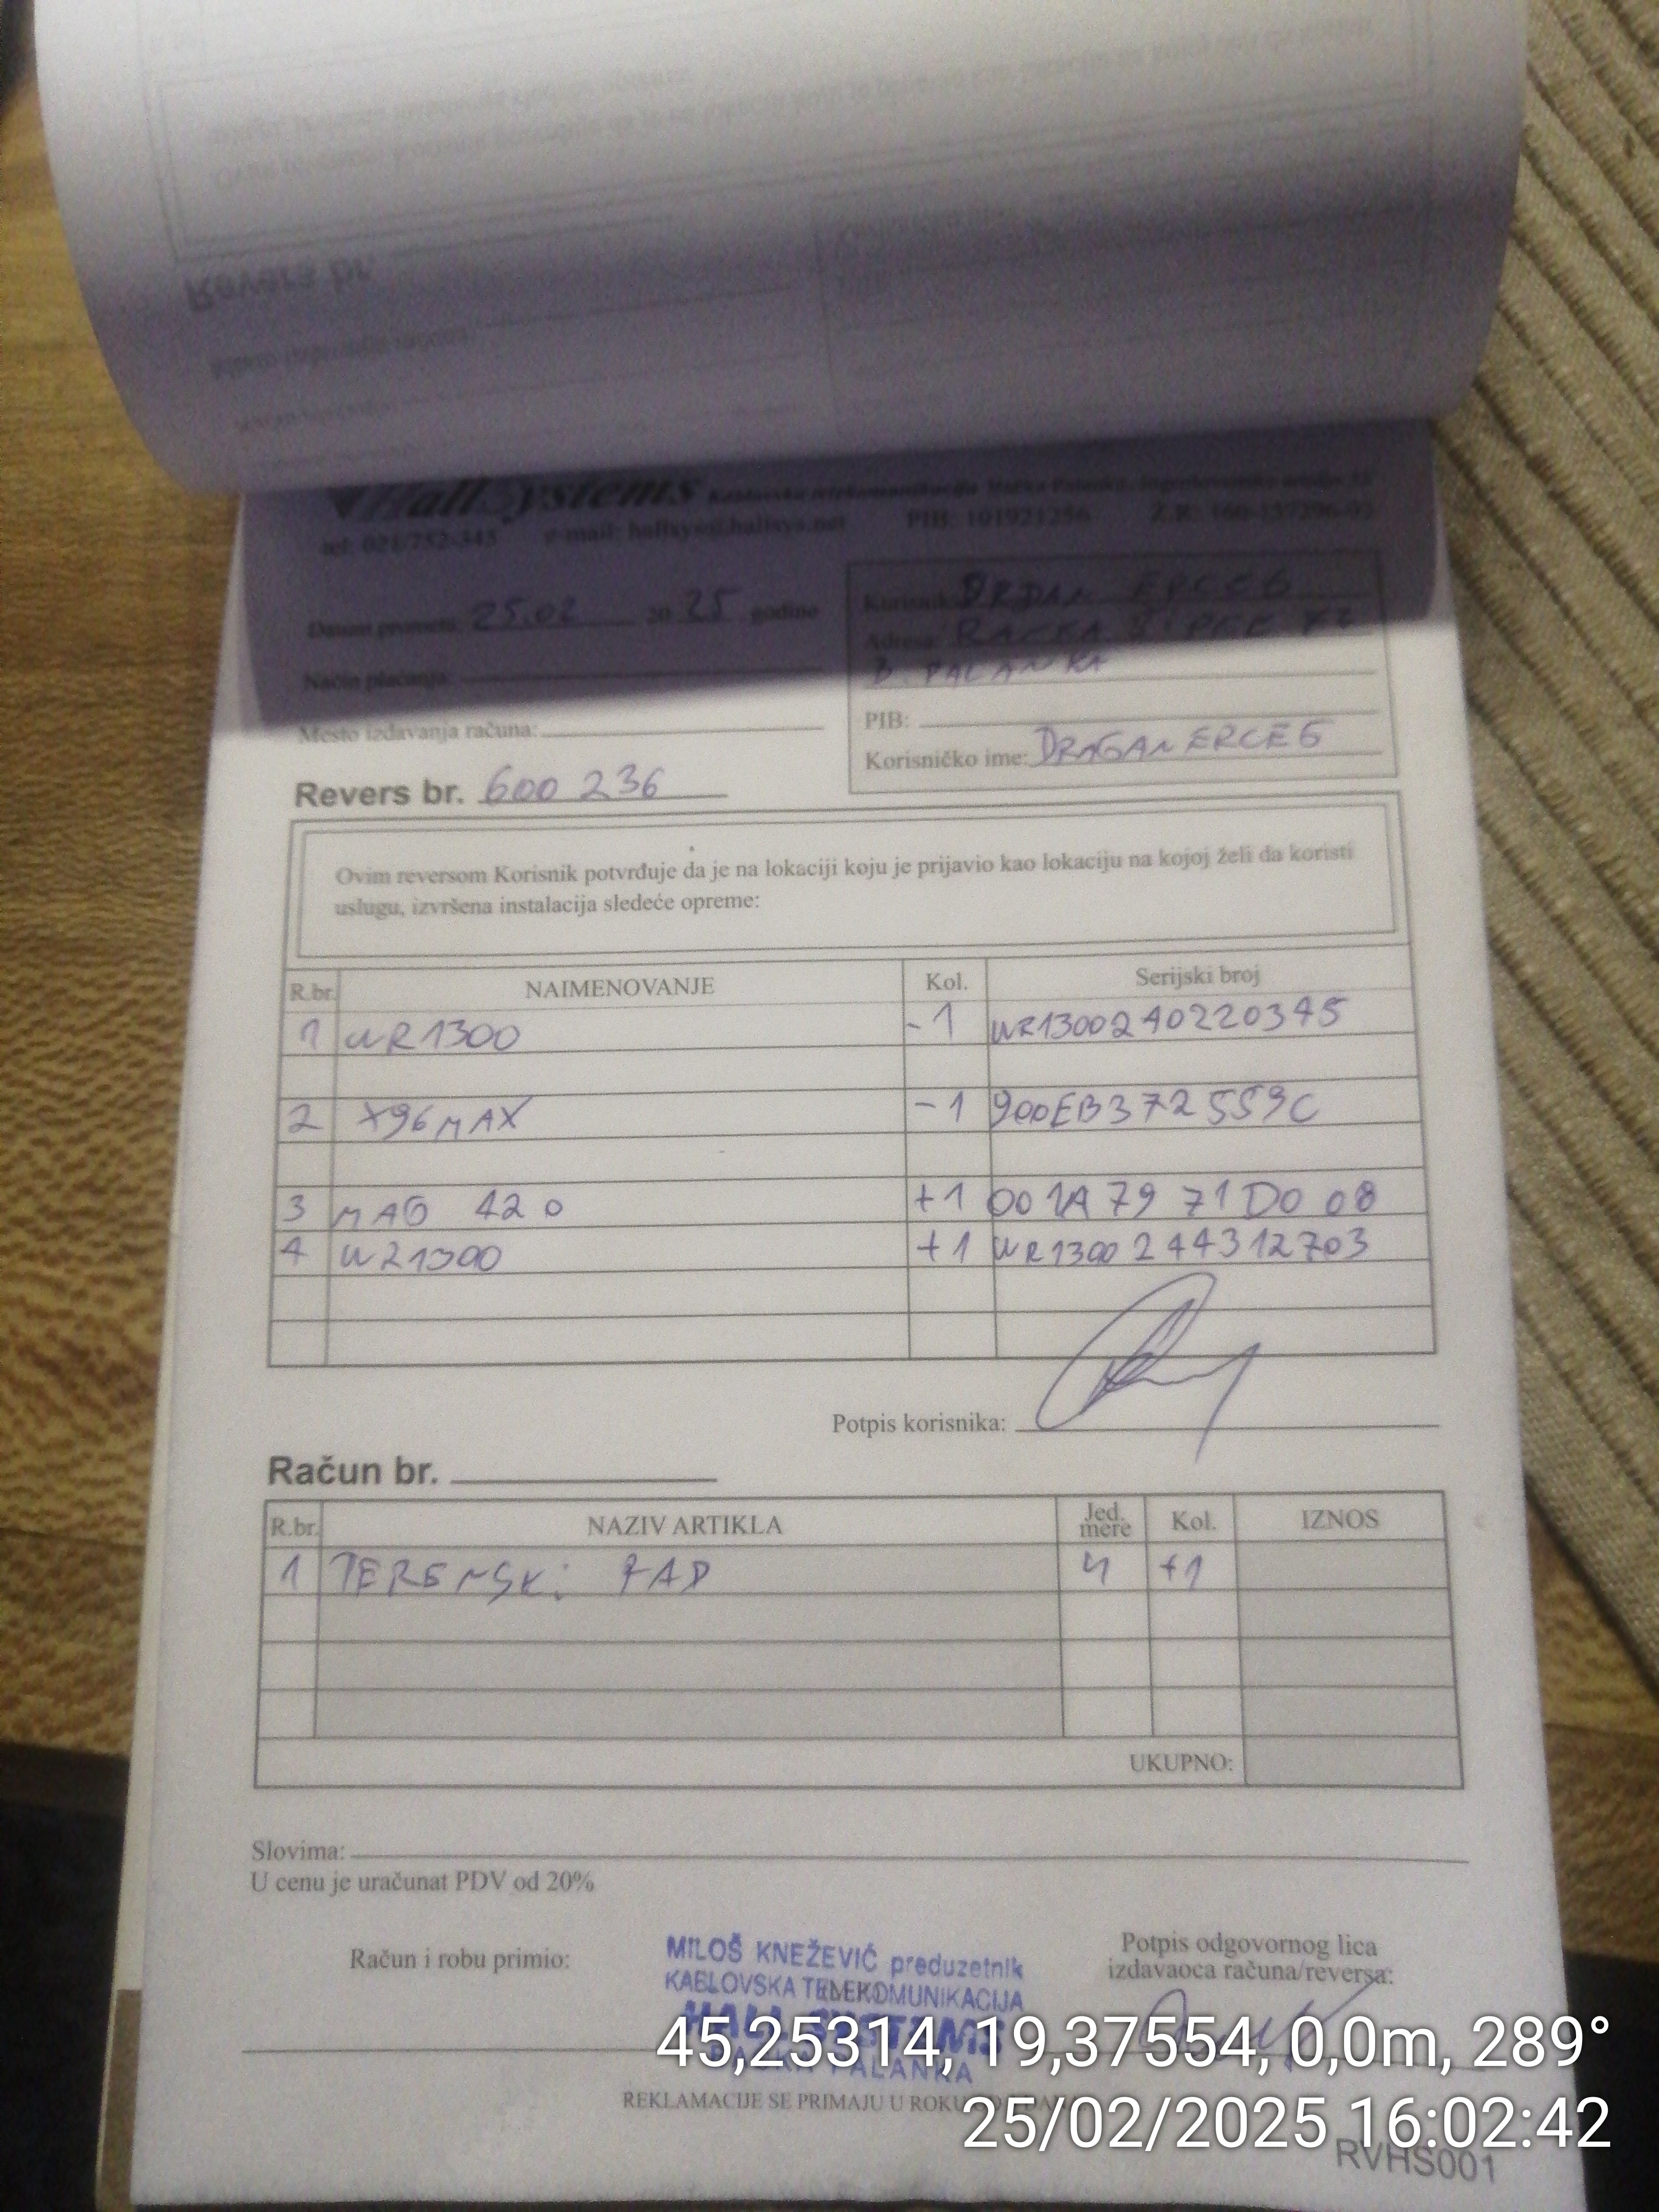 HallSystems Kablovska telekomunikacija Bačka Palanka,
tel: 021/752-345 e-mail: hallsys@hallsys.net PIB: 101921256 Ž.R: 160-157296-93
Datum prometa: 25.02 20 25 godine
Način plaćanja:
Mesto izdavanja računa:
Korisnik: ERCEG
Adresa: RAČKA
B. PALANKA
PIB:
Korisničko ime: DRAGANERCEG
Revers br. 600 236
Ovim reversom Korisnik potvrđuje da je na lokaciji koju je prijavio kao lokaciju na kojoj želi da koristi
uslugu, izvršena instalacija sledeće opreme:
R.br. NAIMENOVANJE Kol. Serijski broj
1 WR1300 -1 WR1300240220345
2 X96MAX -1 900EB372559C
3 MAG 420 +1 001A 79 71 D0 08
4 WR1300 +1 WR1300244312703
Potpis korisnika:
Račun br.
R.br. NAZIV ARTIKLA Jed. mere Kol. IZNOS
1 TERENSKi RAD 4 +1
UKUPNO:
Slovima:
U cenu je uračunat PDV od 20%
Račun i robu primio:
MILOŠ KNEŽEVIĆ preduzetnik
KABLOVSKA TELEKOMUNIKACIJA
HALL SYSTEMS
BAČKA PALANKA
Potpis odgovornog lica
izdavaoca računa/reversa:
REKLAMACIJE SE PRIMAJU U ROKU
45,25314, 19,37554, 0,0m, 289°
25/02/2025 16:02:42
RVHS001